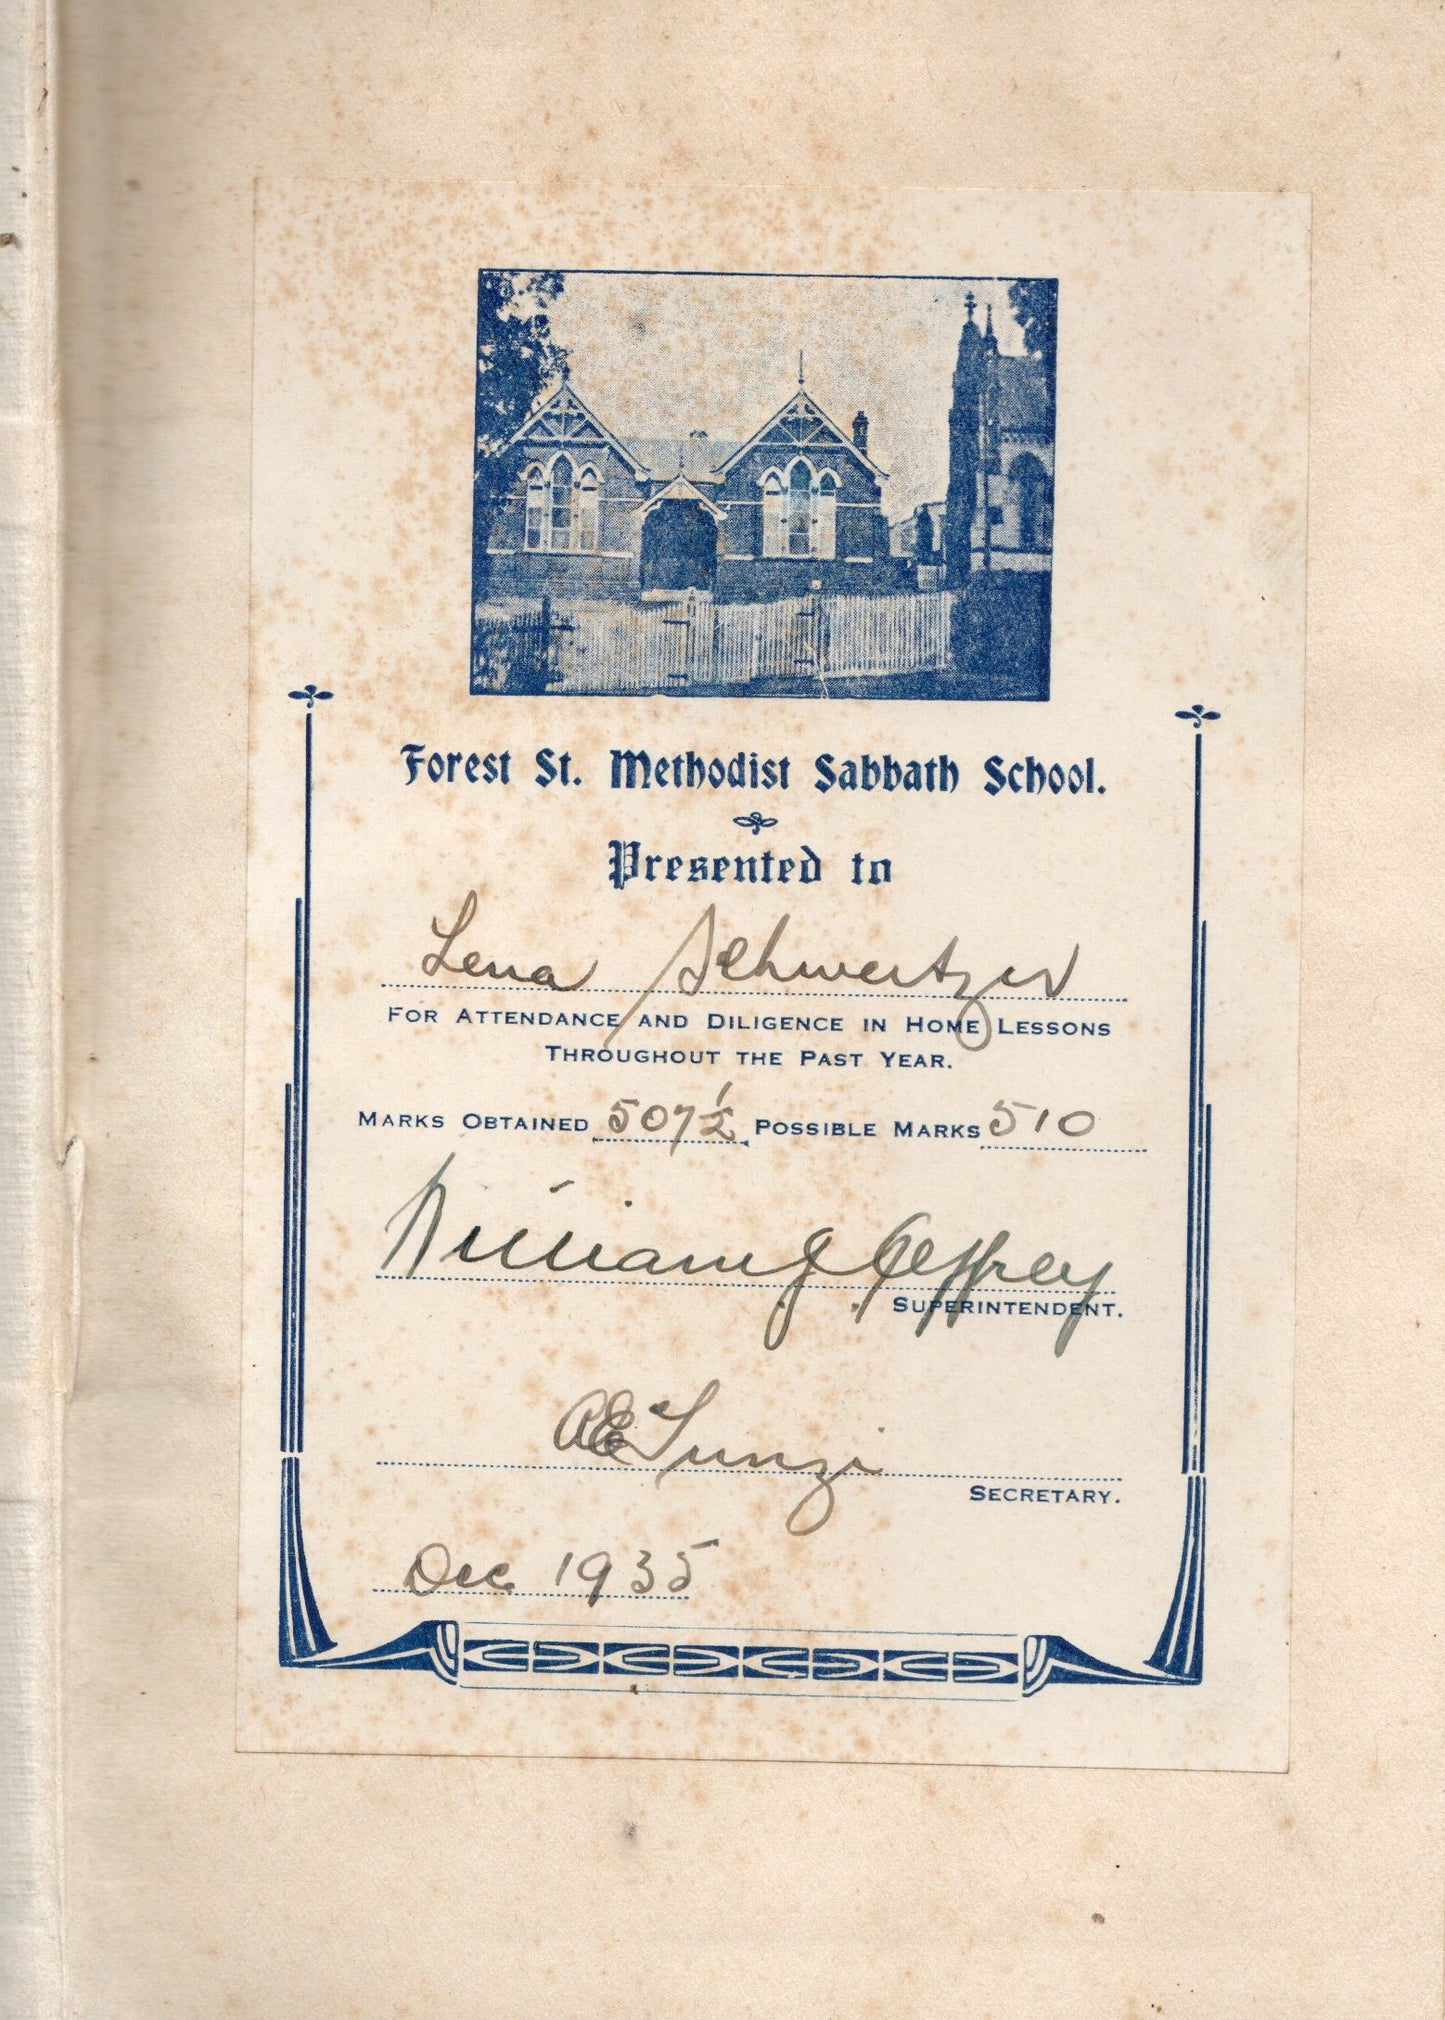 Forest St. Methodist Sabbath School.
Presented to
Lena Schwertzer
FOR ATTENDANCE AND DILIGENCE IN HOME LESSONS
THROUGHOUT THE PAST YEAR.
MARKS OBTAINED 507½ POSSIBLE MARKS 510
William J Jeffrey
SUPERINTENDENT.
AE Tunzi
SECRETARY.
Dec 1935